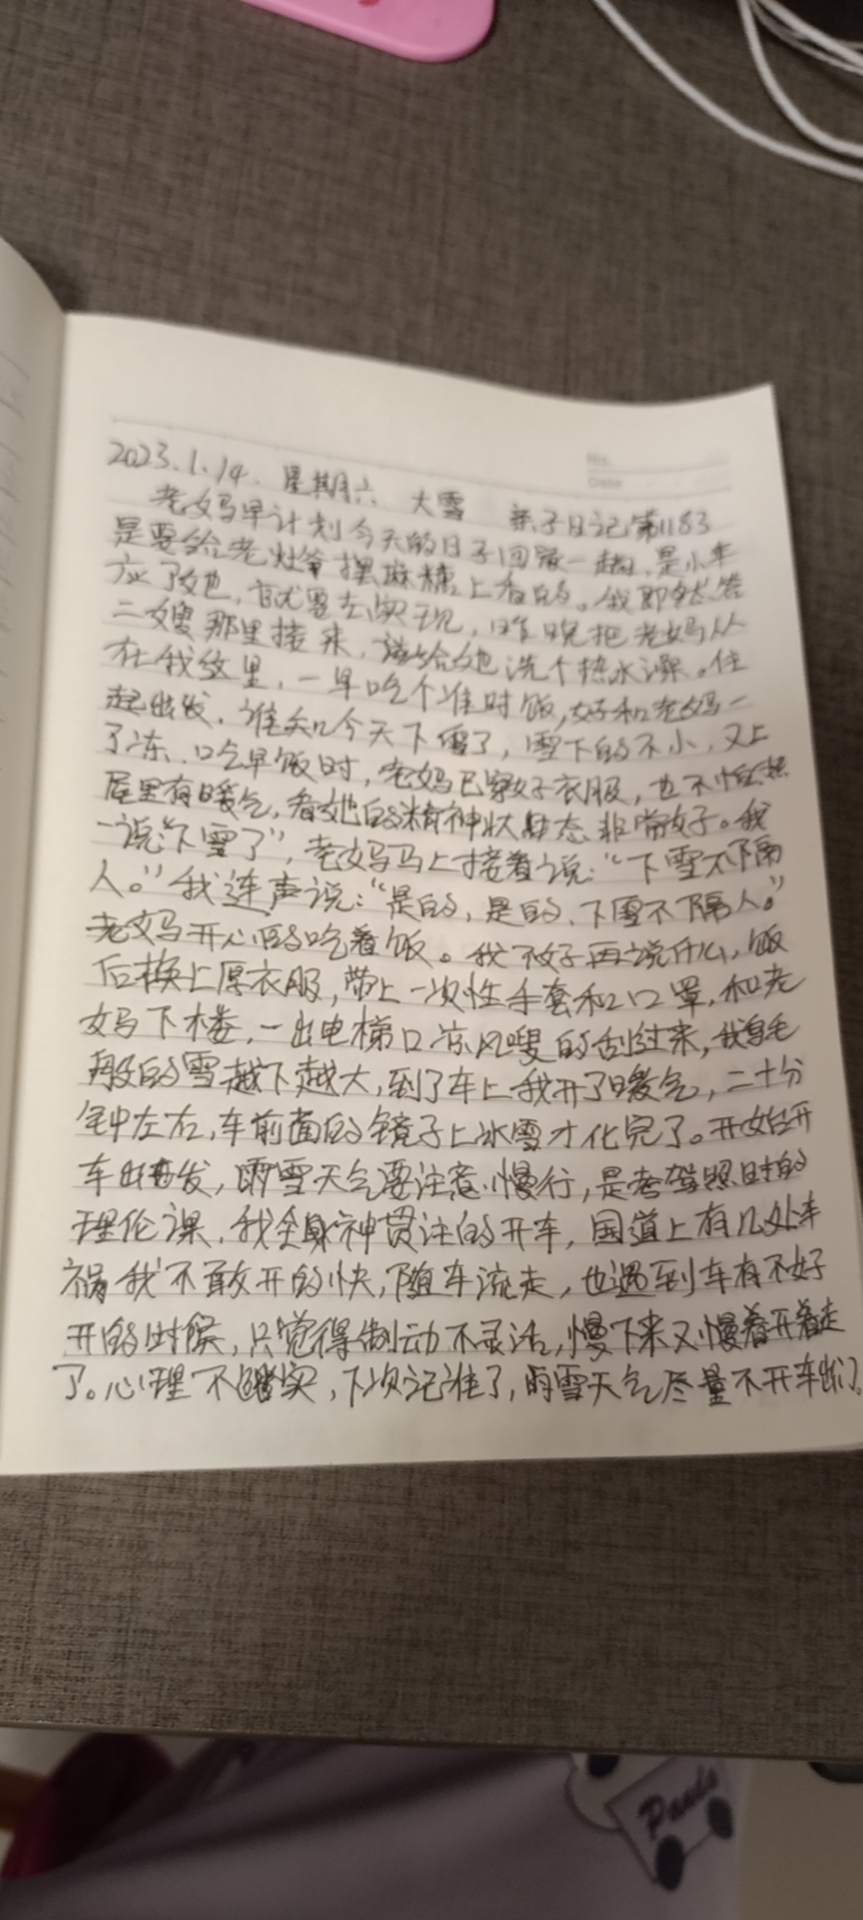 No.
Date
2023.1.14. 星期六 大雪 亲子日记第1183
老妈早计划今天的日子回家一趟,是小年
是要给老灶爷摆麻糖上香的。我即然答
应了她,就要去实现,昨晚把老妈从
二嫂那里接来,说给她洗个热水澡。住
在我这里,一早吃个准时饭,好和老妈一
起出发,谁知今天下雪了,雪下的不小,又上
了冻.吃早饭时,老妈已穿好衣服,也不怕热
屋里有暖气,看她的精神状态非常好。我
一说:“下雪了”,老妈马上接着说:“下雪不隔
人。”我连声说:“是的,是的,下雪不隔人。”
老妈开心的吃着饭。我不好再说什么,饭
后换上厚衣服,带上一次性手套和口罩,和老
妈下楼,一出电梯口凉风嗖的刮过来,鹅毛
般的雪越下越大,到了车上我开了暖气,二十分
钟左右,车前面的镜子上冰雪才化完了。开始开
车出发,雨雪天气要注意慢行,是考驾照时的
理论课,我全身神贯注的开车,国道上有几处车
祸我不敢开的快,随车流走,也遇到车有不好
开的时候,只觉得制动不灵活,慢下来又慢着开着走
了。心理不踏实,下次记准了,雨雪天气尽量不开车出门。
Panda